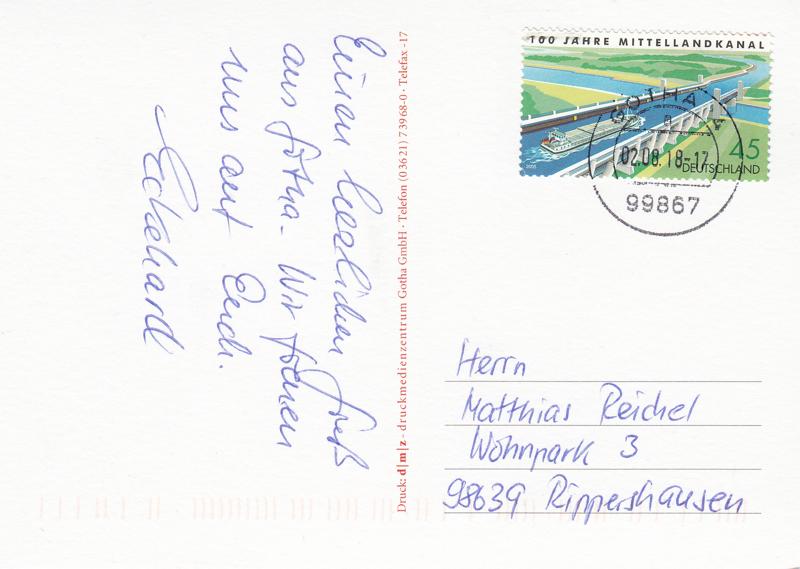 Einen herzlichen Gruß
aus Gotha. Wir freuen
uns auf Euch.
Eckehard
Druck: d|m|z - druckmedienzentrum Gotha GmbH · Telefon (03621) 73968-0 · Telefax -17
100 JAHRE MITTELLANDKANAL
45
DEUTSCHLAND
2005
GOTHA
02.08.18-17
99867
Herrn
Matthias Reichel
Wohnpark 3
98639 Rippershausen